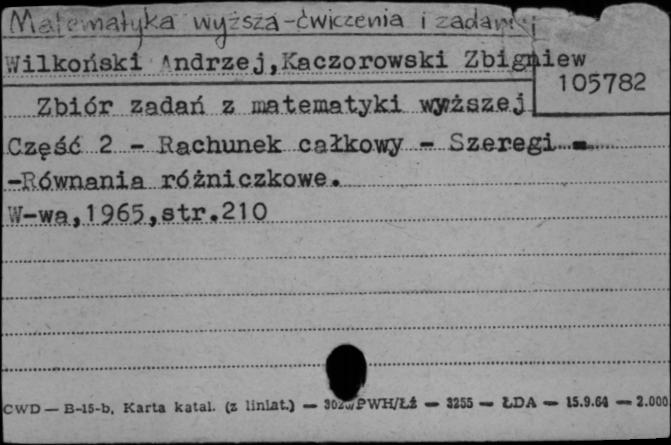 Matematyka wyższa-ćwiczenia i zadania
Wilkoński Andrzej, Kaczorowski Zbigniew
105782
Zbiór zadań z matematyki wyższej
Część 2 - Rachunek całkowy - Szeregi -
-Równania różniczkowe.
W-wa,1965,str.210
CWD — B-15-b, Karta katal. (z liniat.) — PWH/Łż — 3255 — ŁDA — 15.9.64 — 2.000